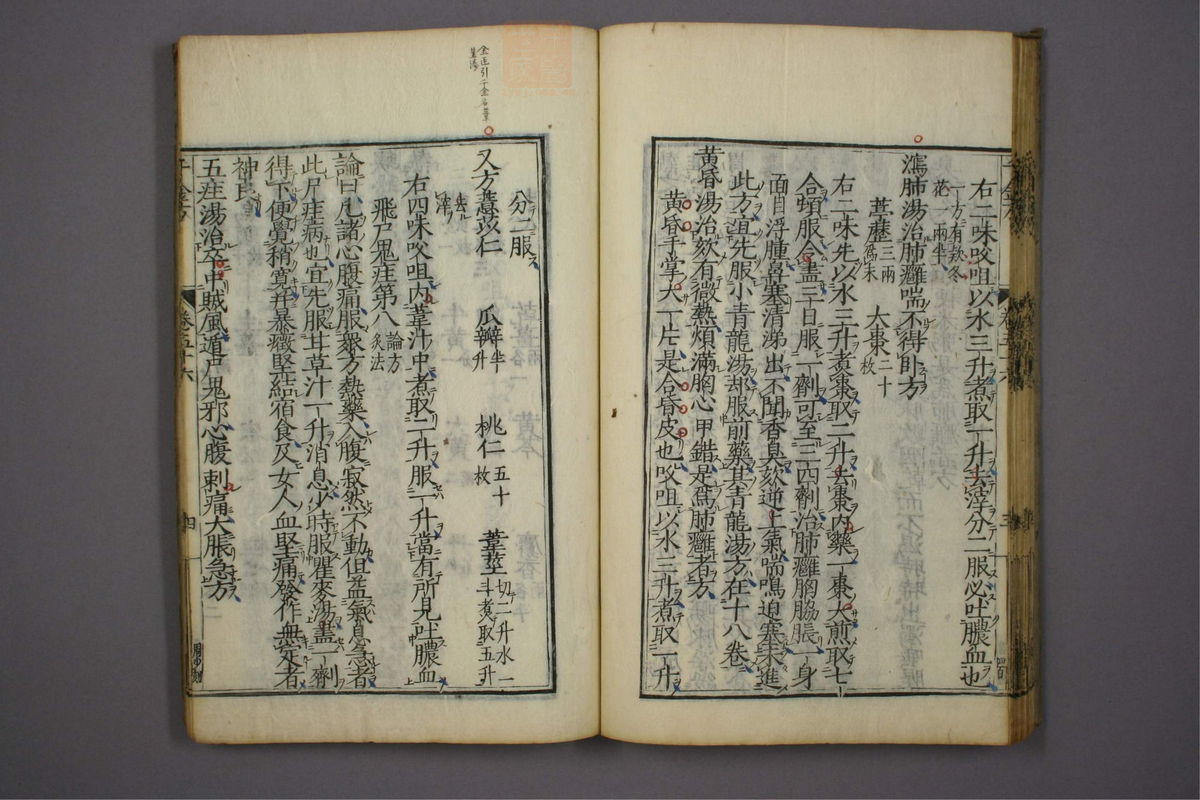 右二味㕮咀以水三升煮取一升去滓分二服必吐膿血也
一方有欵冬
花一兩半
瀉肺湯治肺癰喘不得卧方
葶藶三兩為末 大棗二十枚
右二味先以水三升煮棗取二升去棗内藥一棗大煎取七
合頓服令盡三日服一劑可至三四劑治肺癰胸脇脹一身
面目浮腫鼻塞清涕出不聞香臭欬逆上氣喘鳴迫塞
此方宜先服小青龍湯却服前藥其青龍湯方在十八卷
黄昏湯治欬有微熱煩滿胸心甲錯是為肺癰者方
黄昏手掌大一片是合昏皮也㕮咀以水三升煮取一升
分二服
又方薏苡仁 瓜瓣半升 桃仁五十枚 葦莖切二升水二
斗煮取五升
去滓
右四味㕮咀内葦汁中煮取二升服一升當有所見吐膿血
飛尸鬼疰第八論方
灸法
論曰凡諸心腹痛服衆方熱藥入腹寂然不動但益氣息急者
此尸疰病也宜先服甘草汁一升消息少時服瞿麥湯盡一劑
得下便覺稍寬并暴癥堅結宿食及女人血堅痛發作無定者
神良
五疰湯治卒中賊風遁尸鬼邪心腹刺痛大脹急方
卷五十六
四